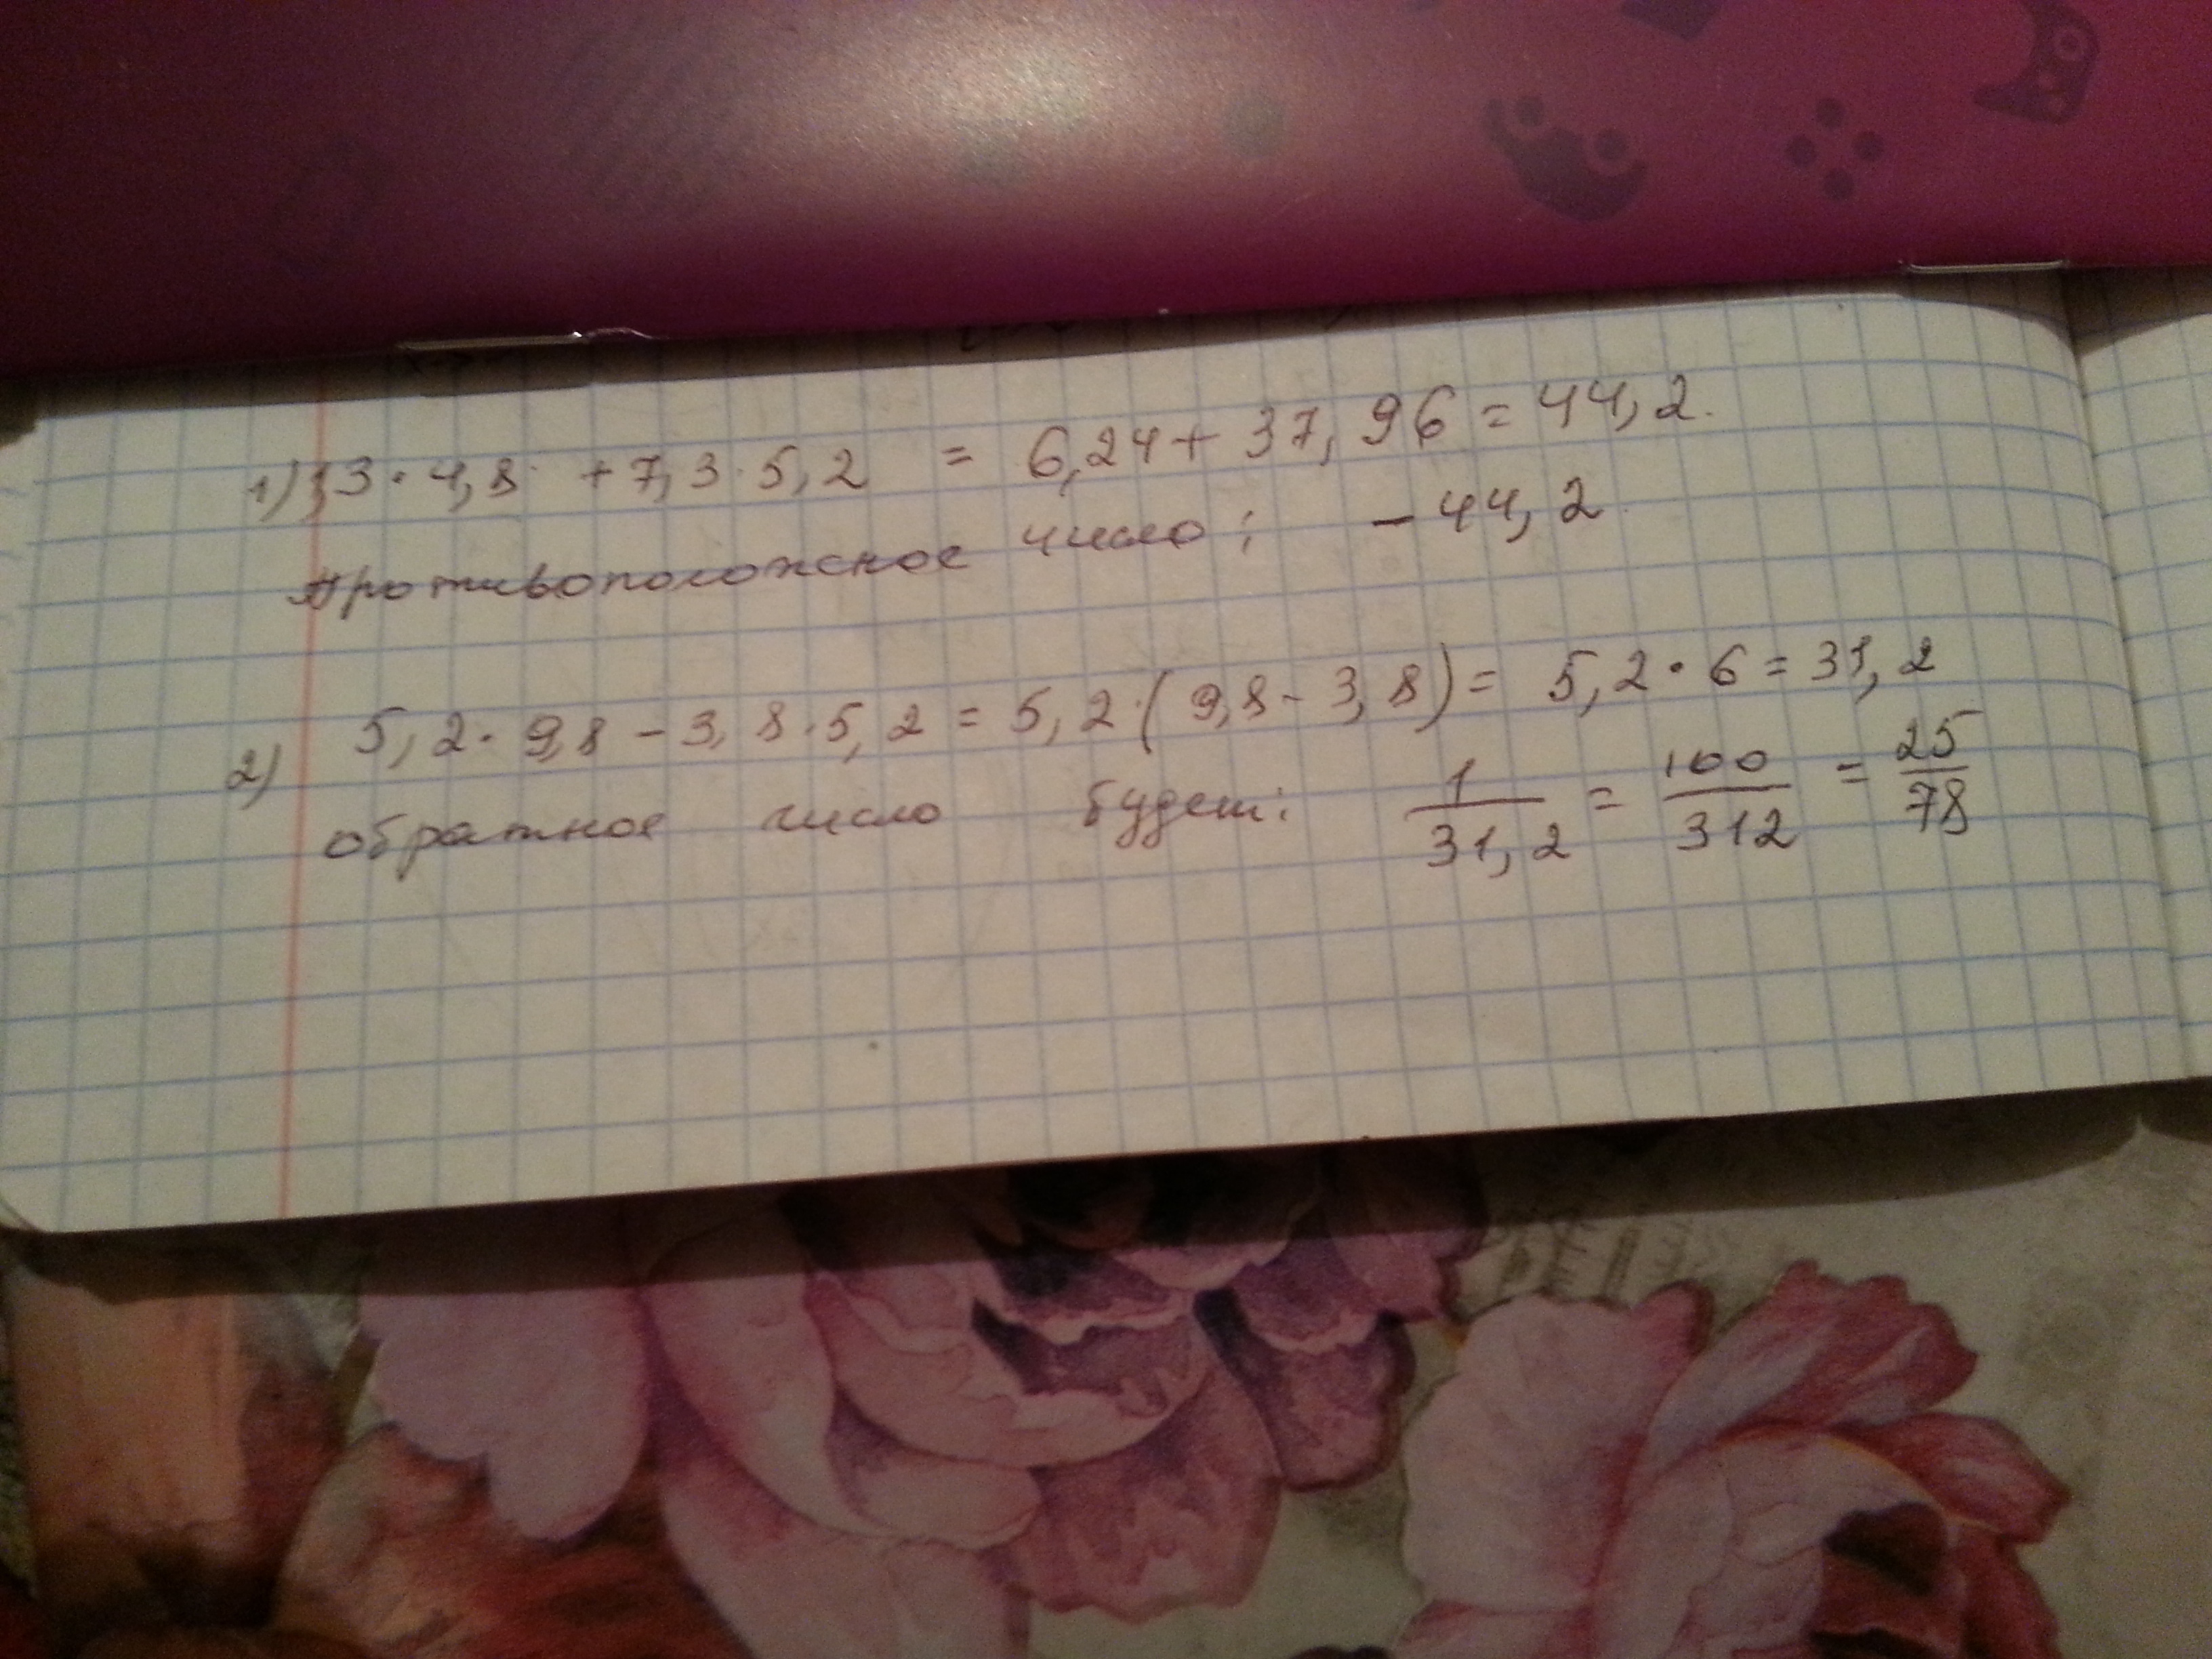 1) 1,3 · 4,8 + 7,3 · 5,2 = 6,24 + 37,96 = 44,2.
Противоположное число: - 44,2
2) 5,2 · 9,8 - 3,8 · 5,2 = 5,2 · (9,8 - 3,8) = 5,2 · 6 = 31,2
обратное число будет: 1/31,2 = 100/312 = 25/78